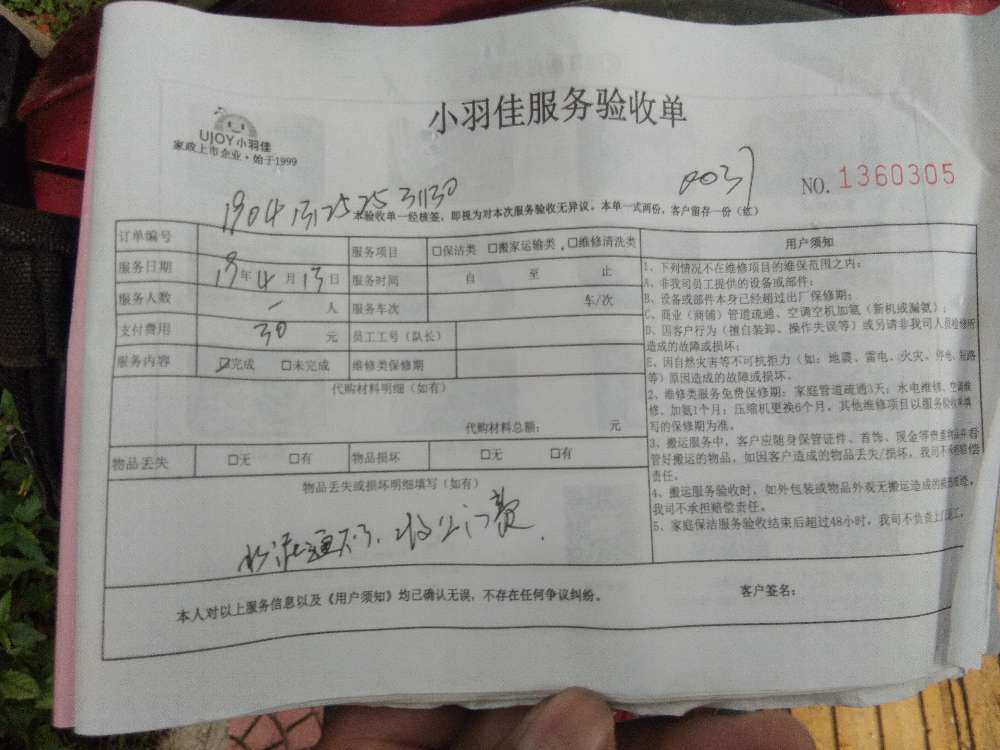 小羽佳服务验收单
UJOY小羽佳
家政上市企业·始于1999
0037
NO. 1360305
本验收单一经核签，即视为对本次服务验收无异议。本单一式两份，客户留存一份（红）
订单编号
服务项目 □保洁类 □搬家运输类 □维修清洗类
服务日期 19年4月13日 服务时间 自 至 止
服务人数 一 人 服务车次 车/次
支付费用 30 元 员工工号（队长）
服务内容 ☑完成 □未完成 维修类保修期
代购材料明细（如有）
代购材料总额： 元
物品丢失 □无 □有 物品损坏 □无 □有
物品丢失或损坏明细填写（如有）
通不了，收上门费.
用户须知
1、下列情况不在维修项目的维保范围之内：
A、非我司员工提供的设备或部件；
B、设备或部件本身已经超过出厂保修期；
C、商业（商铺）管道疏通、空调空机加氟（新机或漏氟）；
D、因客户行为（擅自装卸、操作失误等）或另请非我司人员检修所
造成的故障或损坏；
E、因自然灾害等不可抗拒力（如：地震、雷电、火灾、停电、短路
等）原因造成的故障或损坏。
2、维修类服务免费保修期：家庭管道疏通3天；水电维修、空调维
修、加氟1个月；压缩机更换6个月。其他维修项目以服务验收单填
写的保修期为准。
3、搬运服务中，客户应随身保管证件、首饰、现金等贵重物品并看
管好搬运的物品，如因客户造成的物品丢失/损坏，我司不承担赔偿
责任。
4、搬运服务验收时，如外包装或物品外观无搬运造成的
我司不承担赔偿责任。
5、家庭保洁服务验收结束后超过48小时，我司不负责上门返工。
本人对以上服务信息以及《用户须知》均已确认无误，不存在任何争议纠纷。 客户签名：